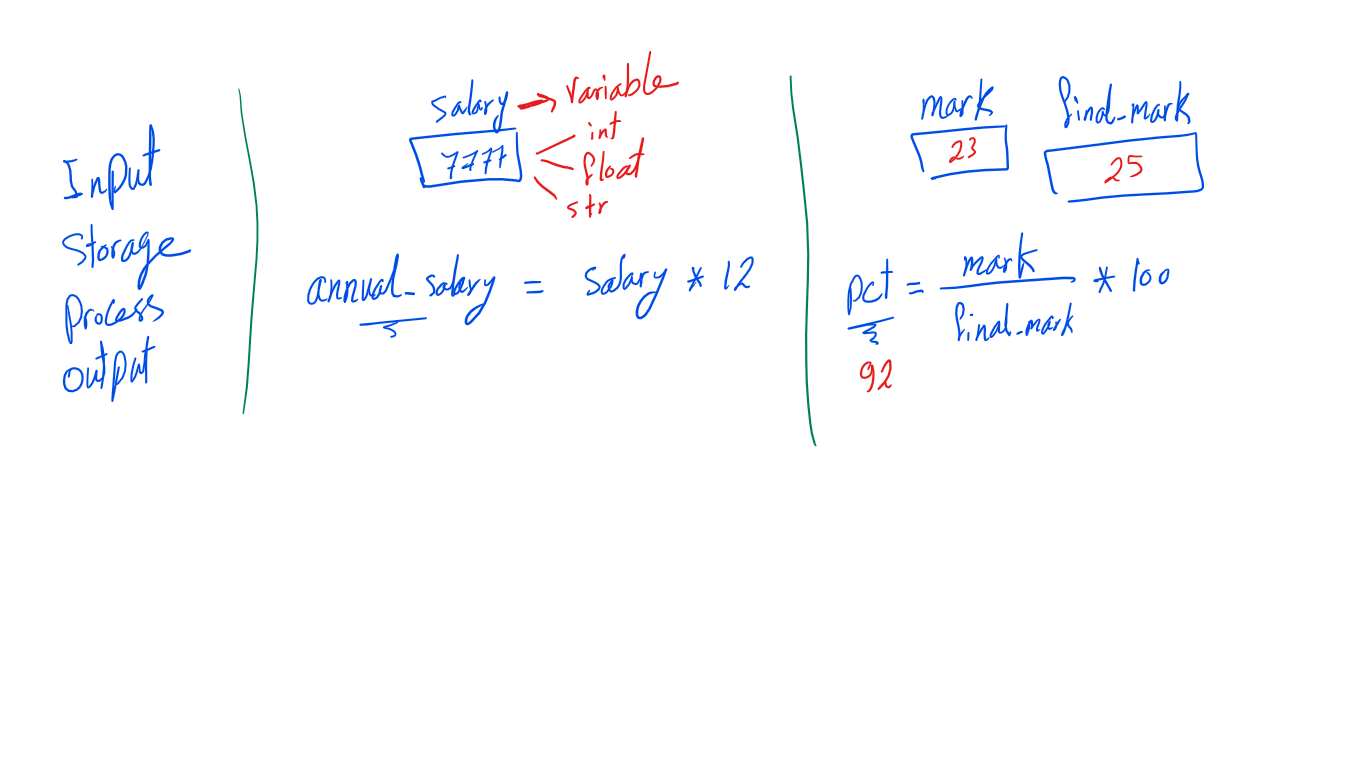 Input
Storage
Process
output
salary → variable
7777
int
float
str
annual_salary = salary * 12
mark final_mark
23 25
pct = mark / final_mark * 100
92